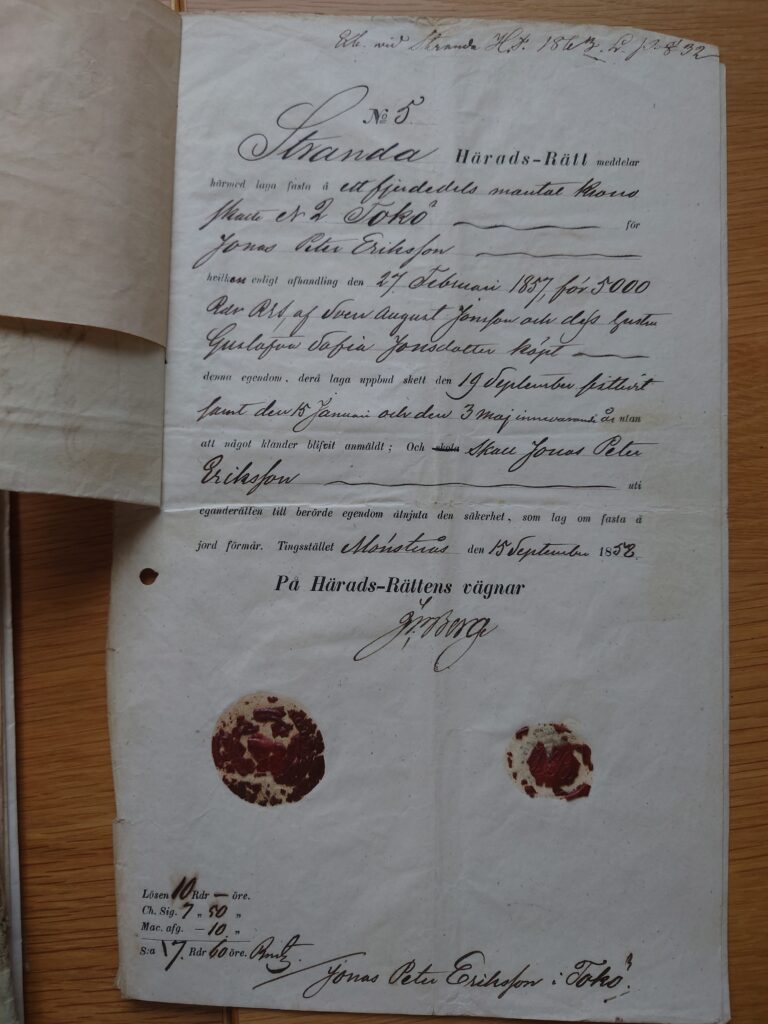 vid Stranda Ht. 1863. L. p. 832
No 5.
Stranda Härads-Rätt meddelar
härmed laga fasta å ett fjerdedels mantal krono
skatte N 2 Tokö för
Jonas Peter Eriksson
hvilken enligt afhandling den 27 Februari 1857, för 5000
Rdr Rgs, af Sven August Jonsson och dess hustru
Gustafva Sofia Jonsdotter köpt
denna egendom, derå laga uppbud skett den 19 September sistlidet
samt den 15 Januari och den 3 maj innevarande år utan
att något klander blifvit anmäldt; Och skola skall Jonas Peter
Eriksson uti
eganderätten till berörde egendom åtnjuta den säkerhet, som lag om fasta å
jord förmår. Tingsstället Mönsterås den 15 September 1858.
På Härads-Rättens vägnar
Berg
Lösen 10 Rdr — öre.
Ch. Sig. 7 „ 50 „
Mac. afg. — 10 „
S:a 17. Rdr 60 öre. Rmt
Jonas Peter Eriksson i Tokö.